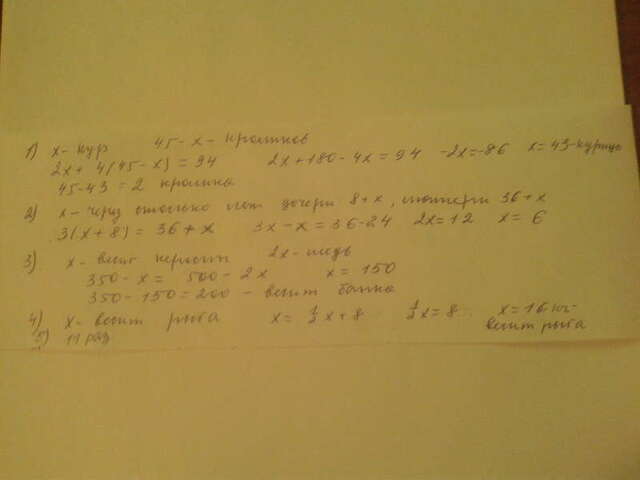 1) x - кур 45 - x - кроликов
2x + 4(45 - x) = 94 2x + 180 - 4x = 94 -2x = -86 x = 43 - курицы
45 - 43 = 2 кролика
2) x - через столько лет дочери 8 + x, матери 36 + x
3(x + 8) = 36 + x 3x - x = 36 - 24 2x = 12 x = 6
3) x - весит керосин 2x -
350 - x = 500 - 2x x = 150
350 - 150 = 200 - весит банка
4) x - весит рыба x = ½x + 8 ½x = 8 x = 16 кг -
весит рыба
5) 11 раз